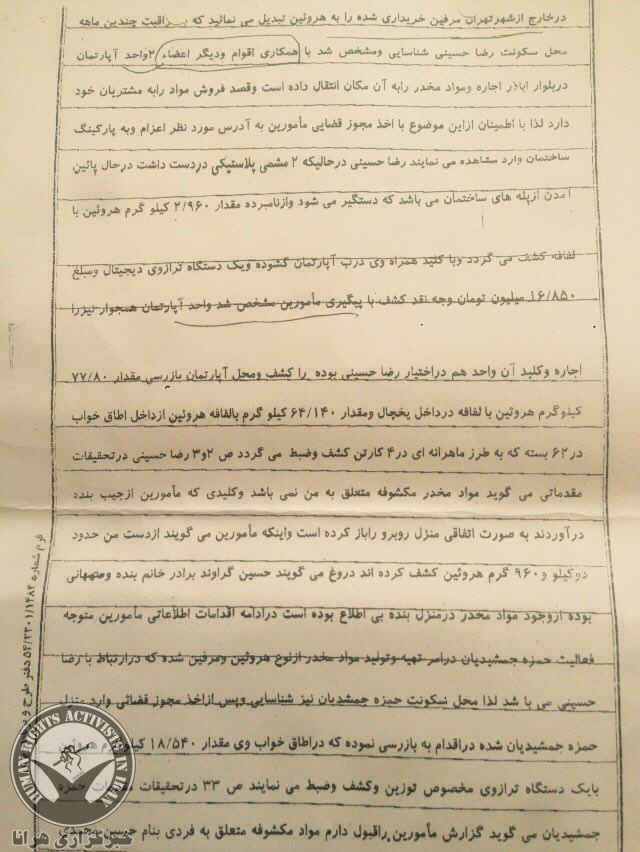 درخارج ازشهرتهران مرفین خریداری شده را به هروئین تبدیل می نمائید که اقبت چندین ماهه
محل سکونت رضا حسینی شناسایی ومشخص شد با همکاری اقوام ودیگر اعضاء ۲واحد آپارتمان
دربلوار اباذر اجاره ومواد مخدر رابه آن مکان انتقال داده است وقصد فروش مواد رابه مشتریان خود
دارد لذا با اطمینان ازاین موضوع با اخذ مجوز قضایی مأمورین به آدرس مورد نظر اعزام وبه پارکینگ
ساختمان وارد مشاهده می نمایند رضا حسینی درحالیکه ۲ مشمی پلاستیکی دردست داشت درحال پائین
آمدن ازپله های ساختمان می باشد که دستگیر می شود وازنامبرده مقدار ۲/۹۶۰ کیلو گرم هروئین با
لفافه کشف می گردد وبا کلید همراه وی درب آپارتمان گشوده ویک دستگاه ترازوی دیجیتال ومبلغ
۱۶/۸۵۰ میلیون تومان وجه نقد کشف با پیگیری مأمورین مشخص شد واحد آپارتمان همجوار نیزرا
اجاره وکلید آن واحد هم دراختیار رضا حسینی بوده را کشف ومحل آپارتمان بازرسی مقدار ۷۷/۸۰
کیلوگرم هروئین با لفافه درداخل یخچال ومقدار ۶۴/۱۴۰ کیلو گرم بالفافه هروئین ازداخل اطاق خواب
در۶۲ بسته که به طرز ماهرانه ای در۴ کارتن کشف وضبط می گردد ص ۲و۳ رضا حسینی درتحقیقات
مقدماتی می گوید مواد مخدر مکشوفه متعلق به من نمی باشد وکلیدی که مأمورین ازجیب بنده
درآوردند به صورت اتفاقی منزل روبرو راباز کرده است واینکه مأمورین می گویند ازدست من حدود
دوکیلو و۹۶۰ گرم هروئین کشف کرده اند دروغ می گویند حسین گراوند برادر خانم بنده ومهمانی
بوده ازوجود مواد مخدر درمنزل بنده بی اطلاع بوده است درادامه اقدامات اطلاعاتی مأمورین متوجه
فعالیت حمزه جمشیدیان درامر تهیه وتولید مواد مخدر ازنوع هروئین ومرفین شده که درارتباط با رضا
حسینی می با شد لذا محل سکونت حمزه جمشدیان نیز شناسایی وپس ازاخذ مجوز قضائی وارد منزل
حمزه جمشیدیان شده دراقدام به بازرسی نموده که دراطاق خواب وی مقدار ۱۸/۵۴۰ کیلوگرم هروئین
بایک دستگاه ترازوی مخصوص توزین وکشف وضبط می نمایند ص ۳۳ درتحقیقات حمزه
جمشیدیان می گوید گزارش مأمورین راقبول دارم مواد مکشوفه متعلق به فردی بنام حسین محمدی
فرم شماره ۵۴/۲۳۰۱/۱۴۸۴ دفتر طرح و
HUMAN RIGHTS ACTIVISTS IN IRAN
خبرگزاری هرانا